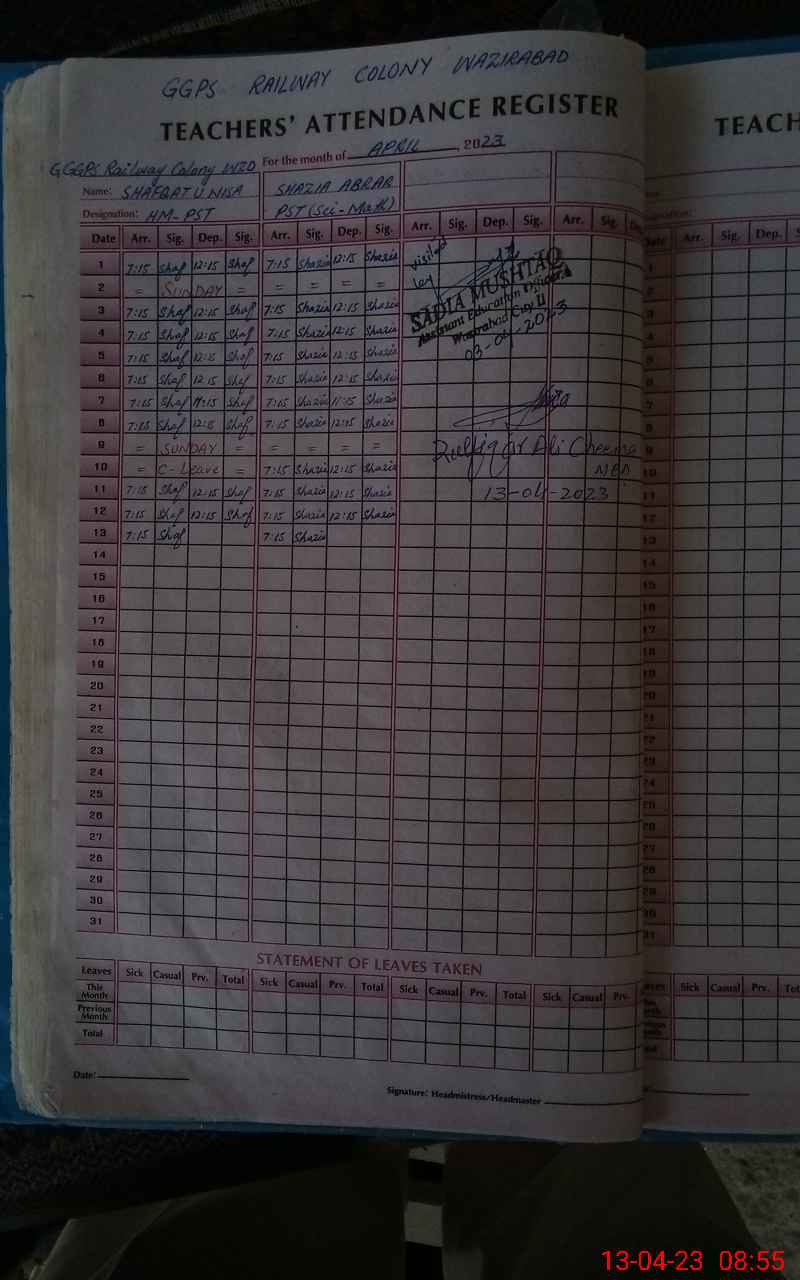 GGPS RAILWAY COLONY WAZIRABAD
TEACHERS' ATTENDANCE REGISTER
GGGPS Railway Colony WZD For the month of APRIL, 2023
Name: SHAFQAT U NISA SHAZIA ABRAR
Designation: HM-PST PST (Sci-Math)
Date Arr. Sig. Dep. Sig. Arr. Sig. Dep. Sig. Arr. Sig. Dep. Sig. Arr. Sig.
1 7:15 Shaf 12:15 Shaf 7:15 Shazia 12:15 Shazia
2 = SUNDAY = = = = =
3 7:15 Shaf 12:15 Shaf 7:15 Shazia 12:15 Shazia
4 7:15 Shaf 12:15 Shaf 7:15 Shazia 12:15 Shazia
5 7:15 Shaf 12:15 Shaf 7:15 Shazia 12:15 Shazia
6 7:15 Shaf 12:15 Shaf 7:15 Shazia 12:15 Shazia
7 7:15 Shaf 11:15 Shaf 7:15 Shazia 11:15 Shazia
8 7:15 Shaf 12:15 Shaf 7:15 Shazia 12:15 Shazia
9 = SUNDAY = = = = =
10 = C-Leave = 7:15 Shazia 12:15 Shazia
11 7:15 Shaf 12:15 Shaf 7:15 Shazia 12:15 Shazia
12 7:15 Shaf 12:15 Shaf 7:15 Shazia 12:15 Shazia
13 7:15 Shaf 7:15 Shazia
14
15
16
17
18
19
20
21
22
23
24
25
26
27
28
29
30
31
visited
by
SADIA MUSHTAQ
Assistant Education Officer
Wazirabad City II
03-04-2023
Zulfiqar Ali Cheema
MEA
13-04-2023
STATEMENT OF LEAVES TAKEN
Leaves Sick Casual Prv. Total Sick Casual Prv. Total Sick Casual Prv. Total Sick Casual Prv.
This Month
Previous Month
Total
Date:
Signature: Headmistress/Headmaster
TEACH
Date Arr. Sig. Dep.
Sick Casual Prv.
13-04-23 08:55